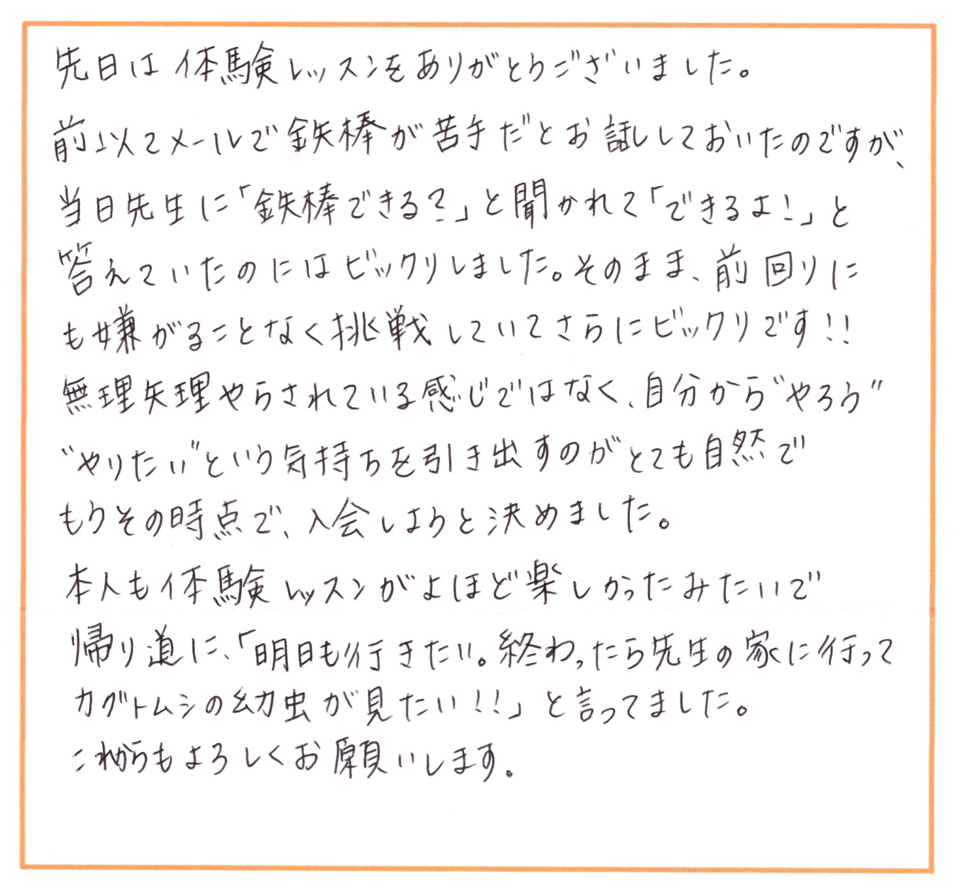 先日は体験レッスンをありがとうございました。
前以てメールで鉄棒が苦手だとお話ししておいたのですが、
当日先生に「鉄棒できる?」と聞かれて「できるよ!」と
答えていたのにはビックリしました。そのまま、前回りに
も嫌がることなく挑戦していてさらにビックリです!!
無理矢理やらされている感じではなく、自分から“やろう”
“やりたい”という気持ちを引き出すのがとても自然で
もうその時点で、入会しようと決めました。
本人も体験レッスンがよほど楽しかったみたいで
帰り道に、「明日も行きたい。終わったら先生の家に行って
カブトムシの幼虫が見たい!!」と言ってました。
これからもよろしくお願いします。